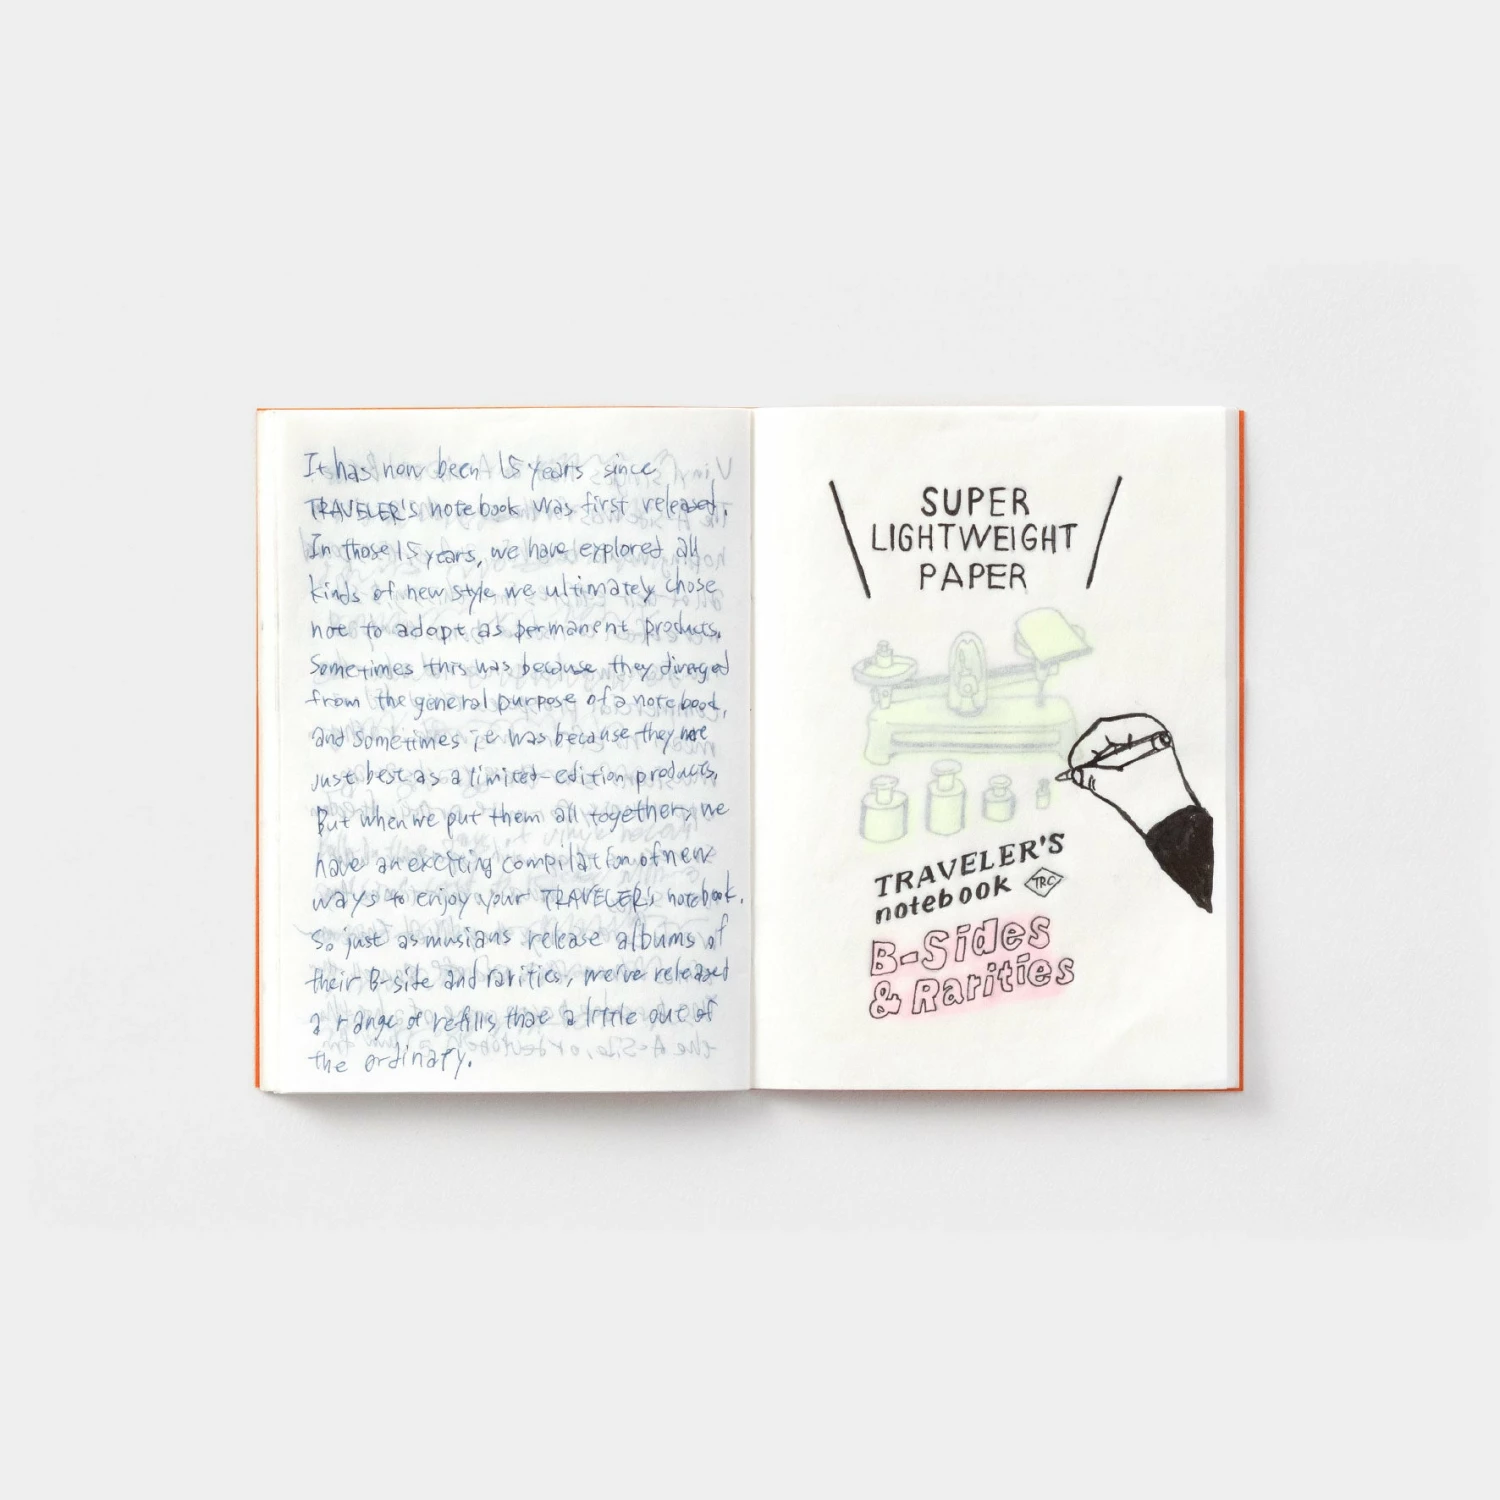 It has now been 15 years since
TRAVELER'S notebook was first released.
In those 15 years, we have explored all
kinds of new style we ultimately chose
not to adopt as permanent products.
Sometimes this was because they diverged
from the general purpose of a notebook,
and sometimes it was because they were
just best as a limited-edition products.
But when we put them all together, we
have an exciting compilation of new
ways to enjoy your TRAVELER's notebook.
So just as musians release albums of
their B-side and rarities, we've released
a range of refills that a little out of
the ordinary.
SUPER
LIGHTWEIGHT
PAPER
TRAVELER'S
notebook TRC
B-Sides
& Rarities